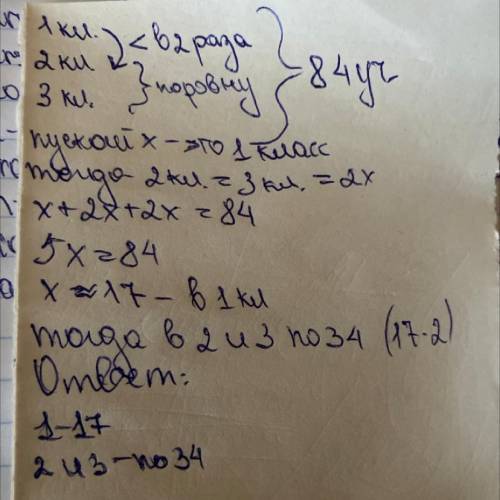 1 кл. < в 2 раза
2 кл
3 кл. поровну
84 уч
пускай x - это 1 класс
тогда 2 кл. = 3 кл. = 2x
x + 2x + 2x = 84
5x = 84
x ≈ 17 - в 1 кл
тогда в 2 и 3 по 34 (17·2)
Ответ:
1-17
2 и 3 - по 34